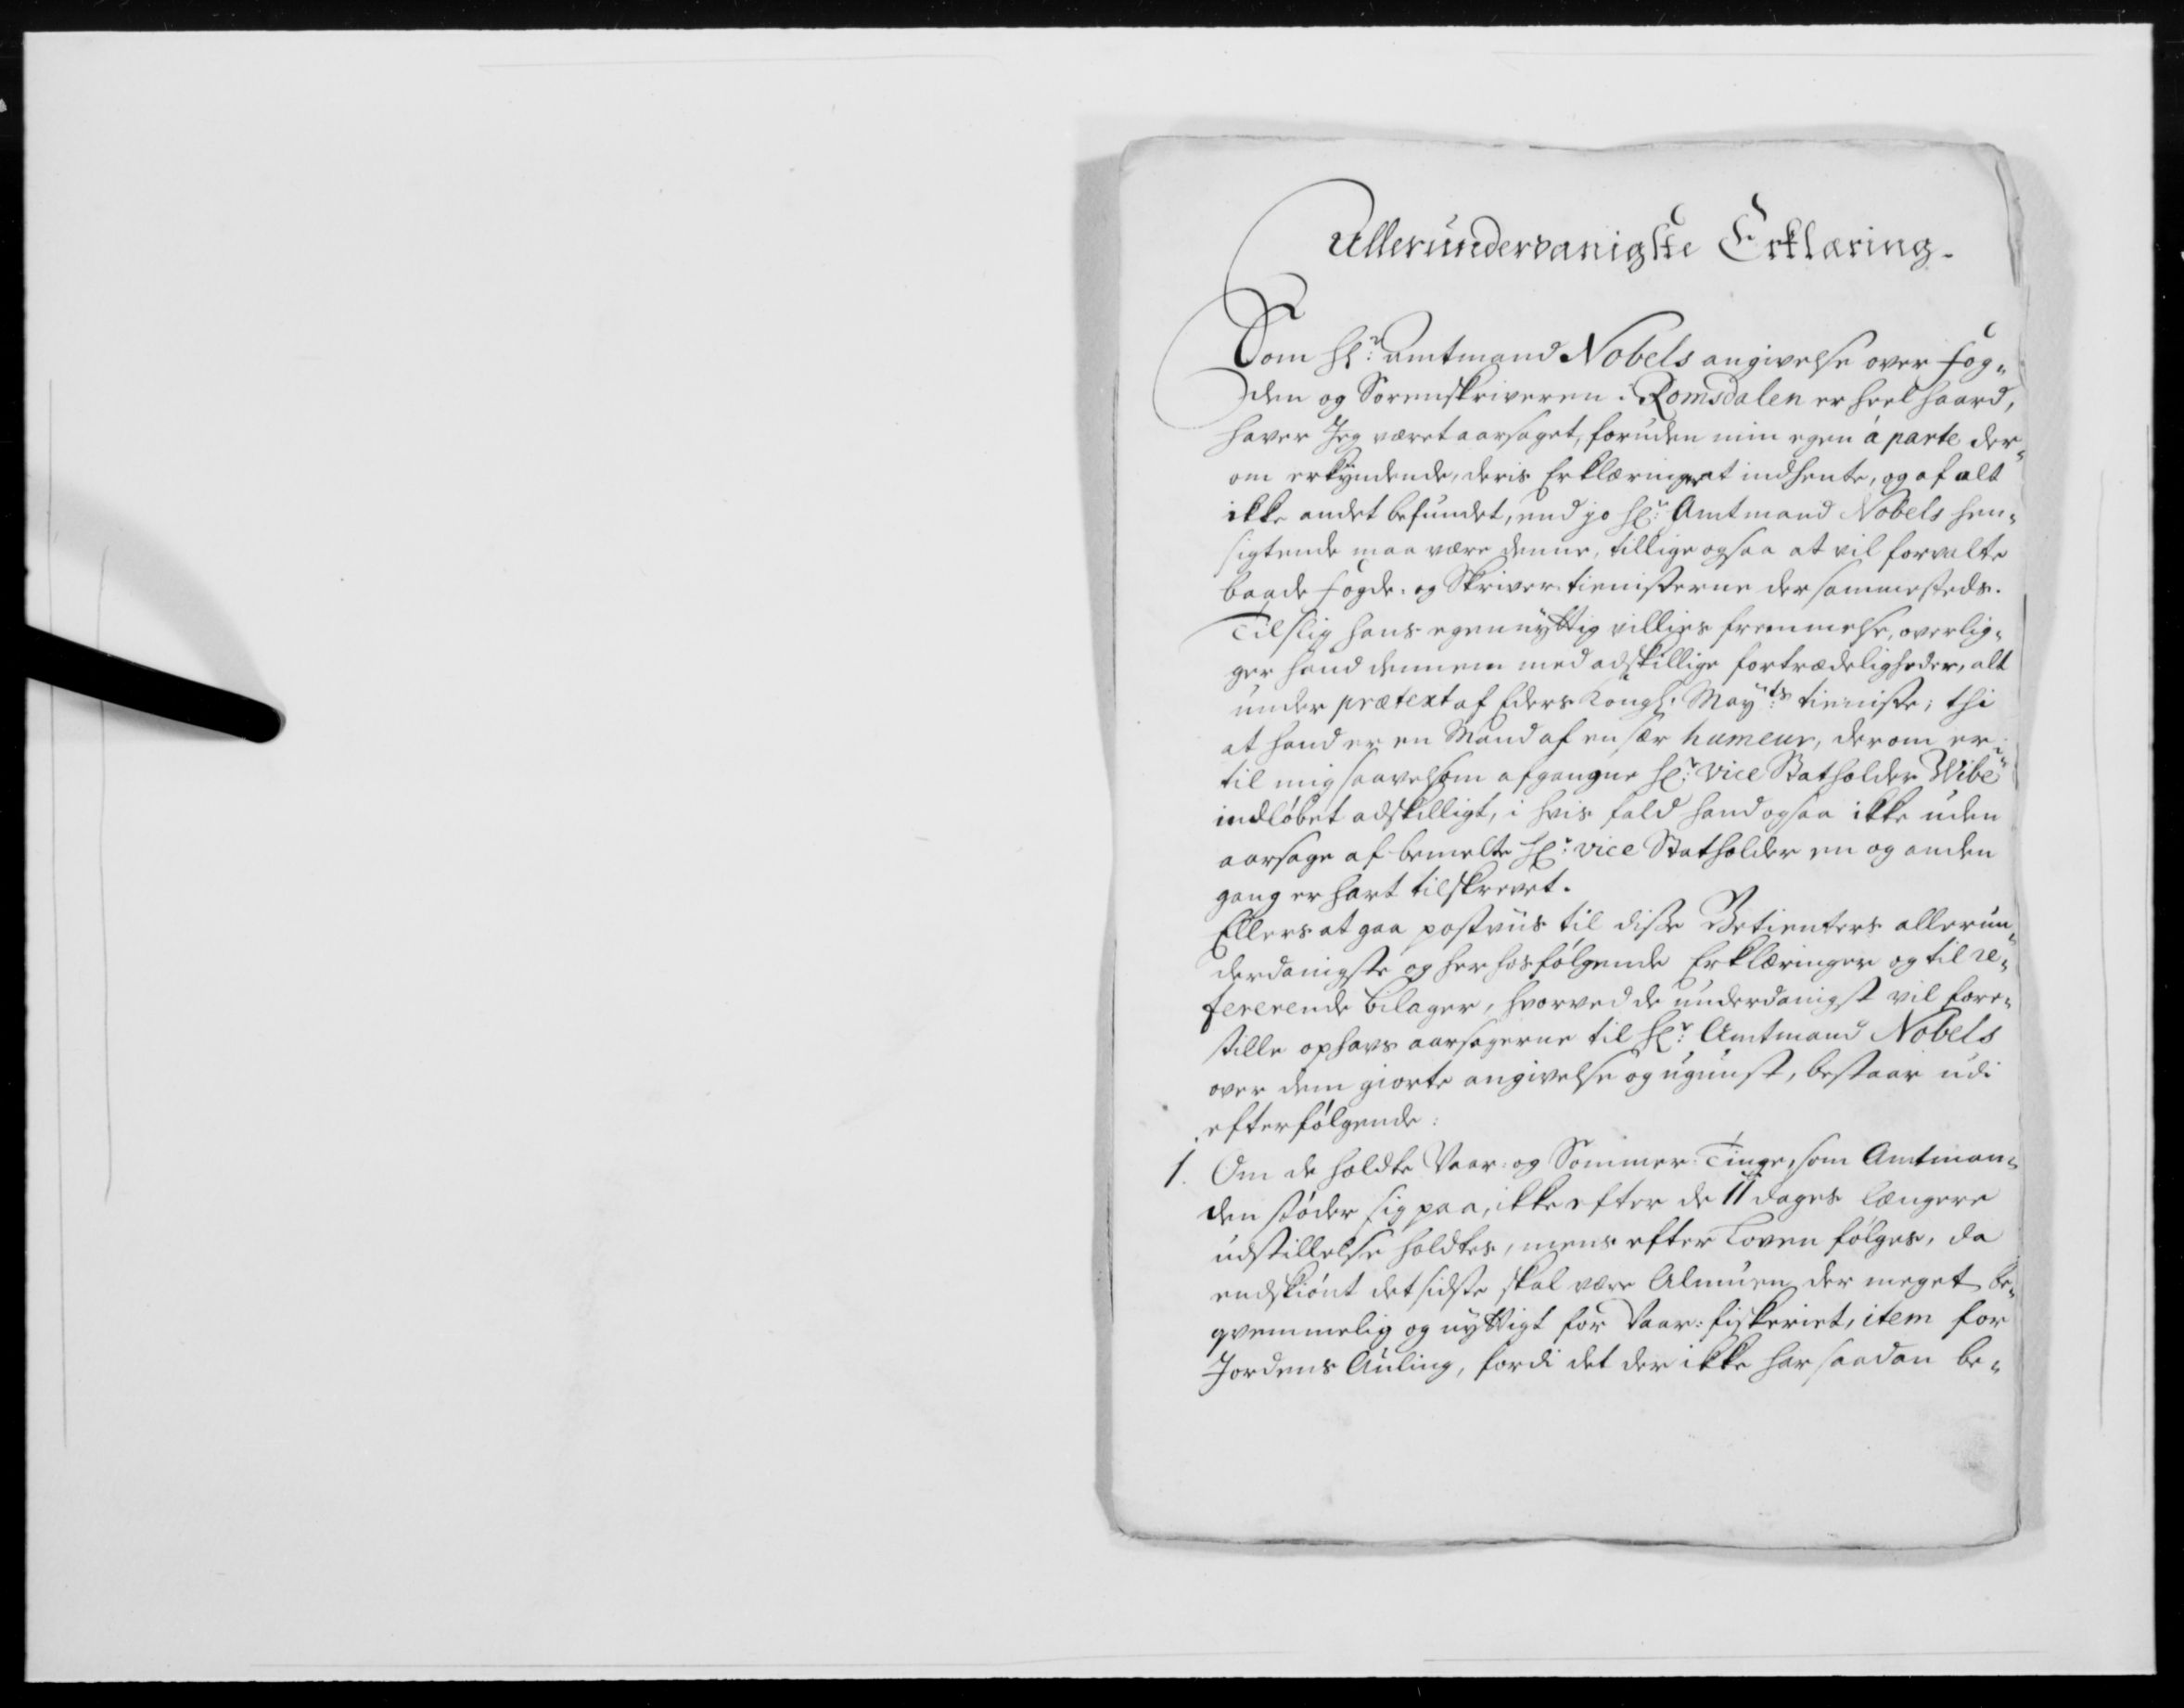 Allerunderdanigste Erklæring.
Som Hr: Amtmand Nobels angivelse over fog„
den og Sorenskriveren i Romsdalen er heel haard,
haver Jeg været aarsaget, foruden min egen à parte der„
om erkyndende, deris Erklæringer at indhente, og af alt
ikke andet befundet, end jo Hr: Amtmand Nobels hen„
sigtende maa være denne, tillige ogsaa at vil forvalte
baade fogde- og Skriver tienisterne der sammesteds.
Til slig hans egennyttig villies fremmelse, overlig„
ger hand dennem med adskillige fortrædeligheder, alt
under prætext af Eders Kongl: May:ts tieniste; thi
at hand er en Mand af en sær humeur, derom er
til mig saavelsom afgangne Hr: Vice Statholder Wibe
indløbet adskilligt, i hvis fald hand ogsaa ikke uden
aarsage af bemelte Hr: Vice Statholder en og anden
gang er hart tilskrevet.
Ellers at gaa postviis til disse Betienters allerun„
derdanigste og her hos følgende Erklæringer og til re„
fererende bilager, hvorved de underdanigst vil fore„
stille ophavs aarsagerne til Hr: Amtmand Nobels
over dem giorte angivelse og ugunst, bestaar udi
efterfølgende:
1. Om de holdte Vaar- og Sommer-Tinge, som Amtman„
den støder sig paa, ikke efter de 11 dages længere
udstillelse holdtes, mens efter Loven følges, da
endskiønt det sidste skal være Almuen der meget be„
qvemmelig og nyttigt for Vaar-fiskeriet, item for
Jordens Auling, fordi det der ikke har saadan be„